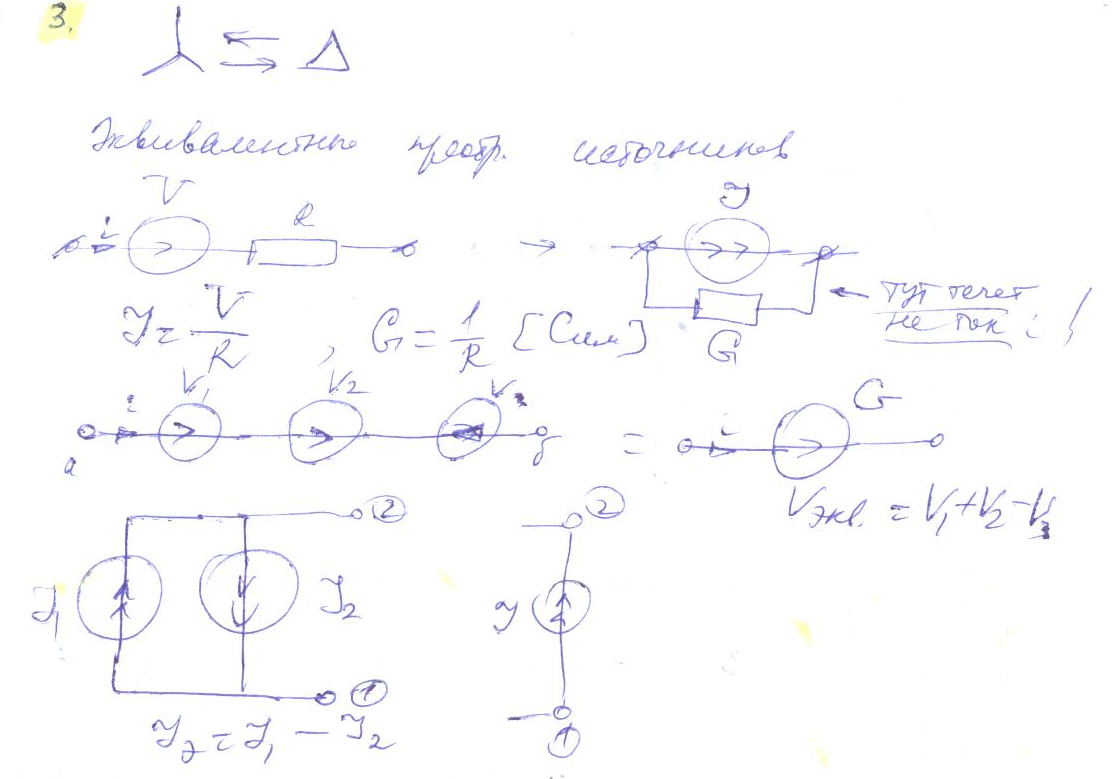 3.
Эквивалентные преобр. источников
V
i
R
J
J = V/R , G = 1/R [Сим]
G
тут течет
не ток i !
V₁ V₂ V₃
i
a
б
=
i
G
Vэкв. = V₁+V₂-V₃
②
J₁
J₂
①
Jэ = J₁ - J₂
②
J
①